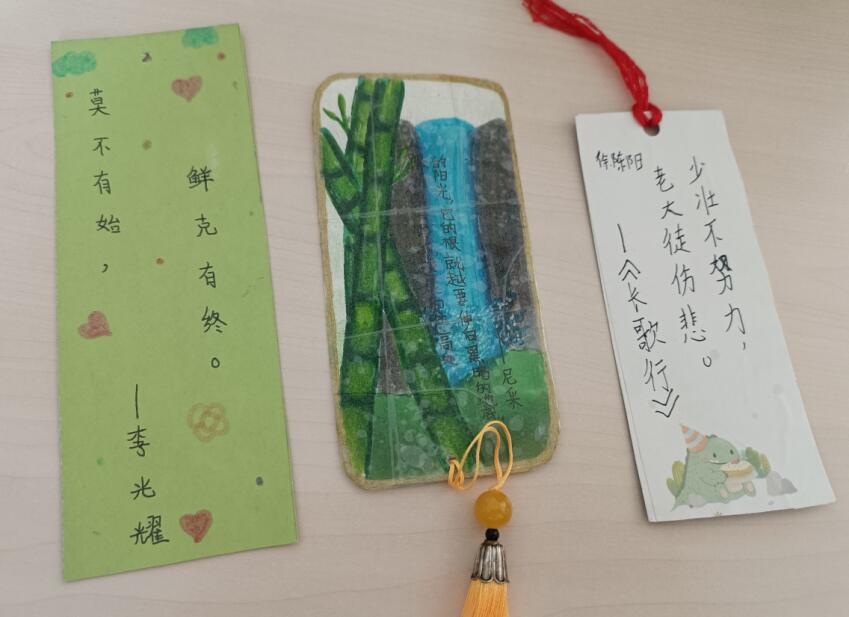 莫不有始，
鲜克有终。
—李光耀
的阳光，它的根，就越要伸向黑暗的
—尼采
徐陈阳
少壮不努力，
老大徒伤悲。
—《长歌行》